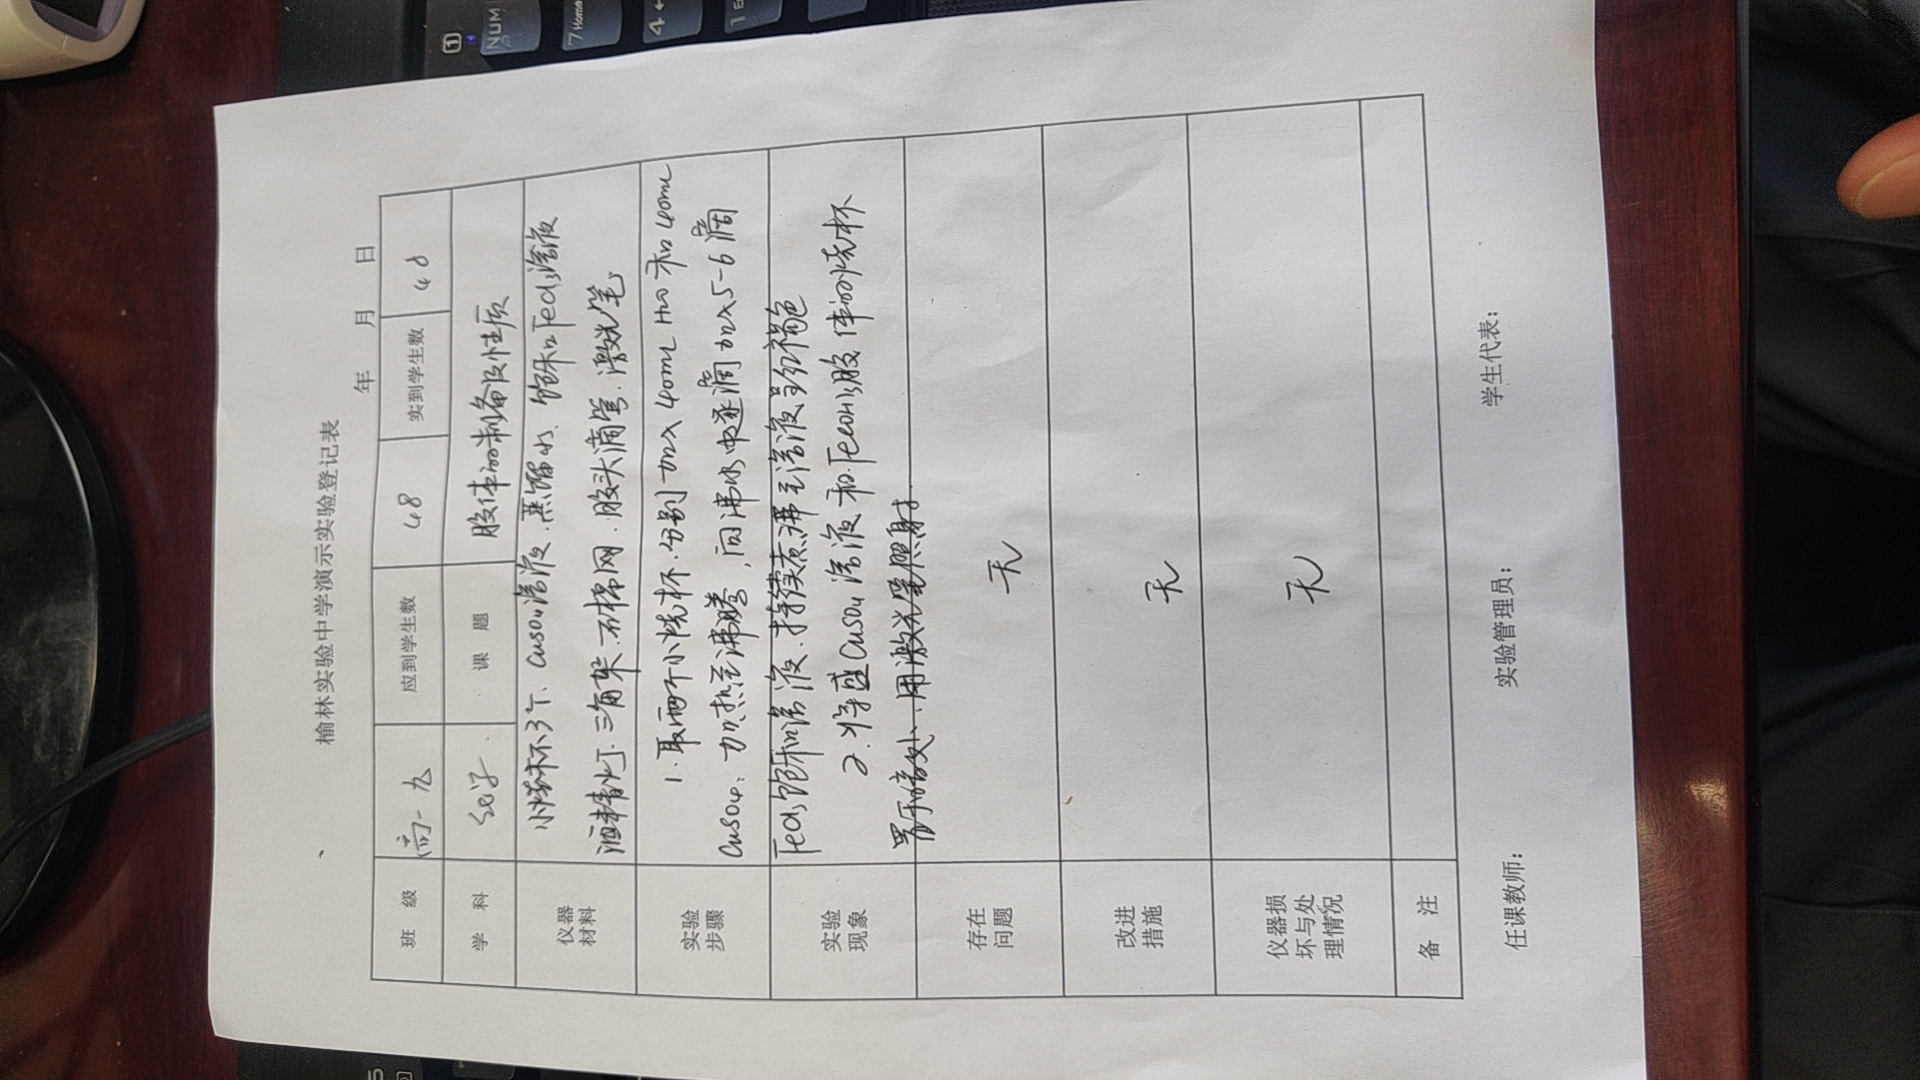 榆林实验中学演示实验登记表
年 月 日
班 级 高一九 应到学生数 48 实到学生数 48
学 科 化学 课 题 胶体的制备及性质
仪器材料 小烧杯3个、CuSO4溶液、蒸馏水、饱和FeCl3溶液
酒精灯、三角架、石棉网、胶头滴管、激光笔
实验步骤 1.取两个小烧杯、分别加入40mL H2O和40mL
CuSO4、加热至沸腾,向沸水中逐滴加入5-6滴
实验现象 FeCl3饱和溶液、持续煮沸至溶液呈红褐色
2.将盛CuSO4溶液和Fe(OH)3胶体的烧杯
置于暗处、用激光笔照射
存在问题 无
改进措施 无
仪器损坏与处理情况 无
备 注
任课教师: 实验管理员: 学生代表:
NUM
7 Home
4
1
5